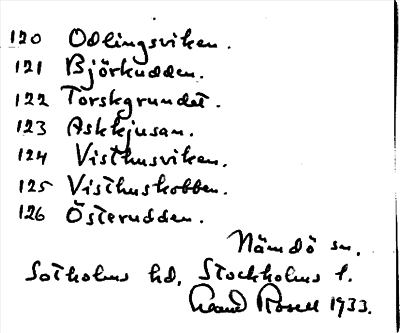 120 Odlingsviken.
121 Björkudden.
122 Torskgrundet.
123 Askkjusan.
124 Visthusviken.
125 Visthuskobben.
126 Österudden.
Nämdö sn.
Sotholms hd, Stockholms l.
1933.